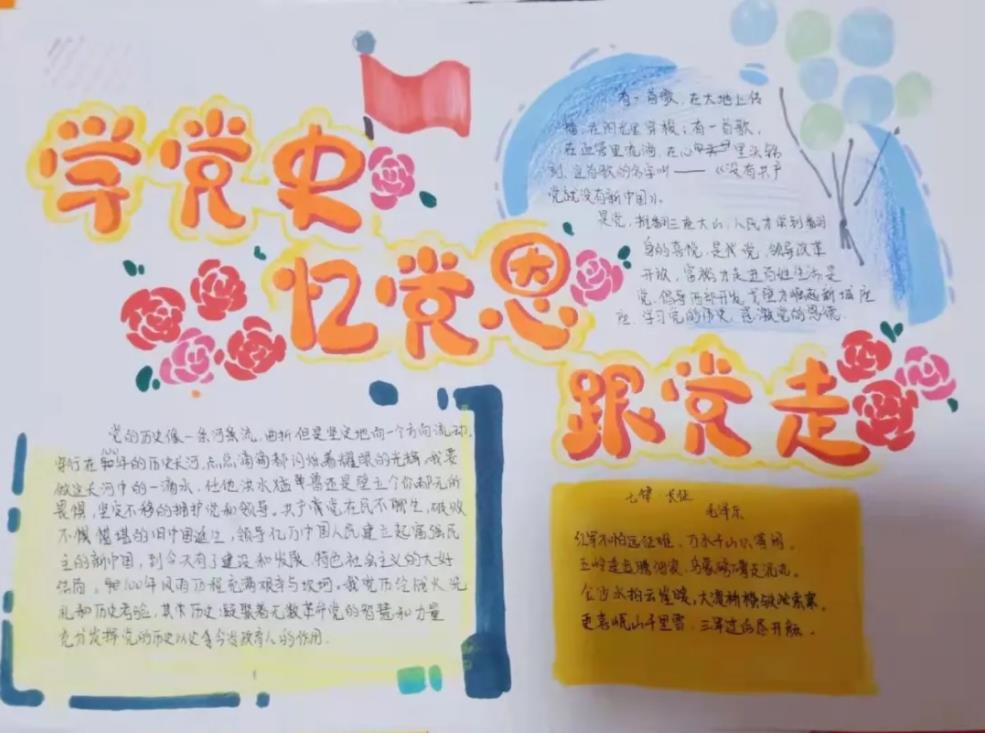 学党史
忆党恩
跟党走
有一首歌，在大地上传
播，在阳光里穿梭；有一首歌，
在血管里流淌，在心里
到，这首歌的名字叫——《没有共产
党就没有新中国》。
是党，推翻三座大山，人民才尝到翻
身的喜悦，是我党，领导改革
开放，富裕才走进百姓生活是
党，倡导西部开发，戈壁才崛起新城座
座，学习党的历史，感激党的恩德.
党的历史像一条河条流，曲折但是坚定地向一个方向流动，
穿行在100年的历史长河，点点滴滴都闪烁着耀眼的光辉，我要
做这长河中的一滴水，任他洪水猛兽还是壁立个仞都无所
畏惧，坚定不移的拥护党和领导。共产党在民不聊生，破败
不堪的旧中国诞生，领导亿万中国人民建立起富强民
主的新中国，到今天有了建设和发展，特色社会主义的大好
结局，100年风雨历程充满艰辛与坎坷。我党历经战火洗
礼和历史考验，其本历史凝聚着无数革命党的智慧和力量
充分发挥党的历史以史鉴今资政育人的作用.
七律 长征
毛泽东
红军不怕远征难，万水千山只等闲。
五岭逶迤腾细浪，乌蒙磅礴走泥丸。
金沙水拍云崖暖，大渡桥横铁索寒。
更喜岷山千里雪，三军过后尽开颜。